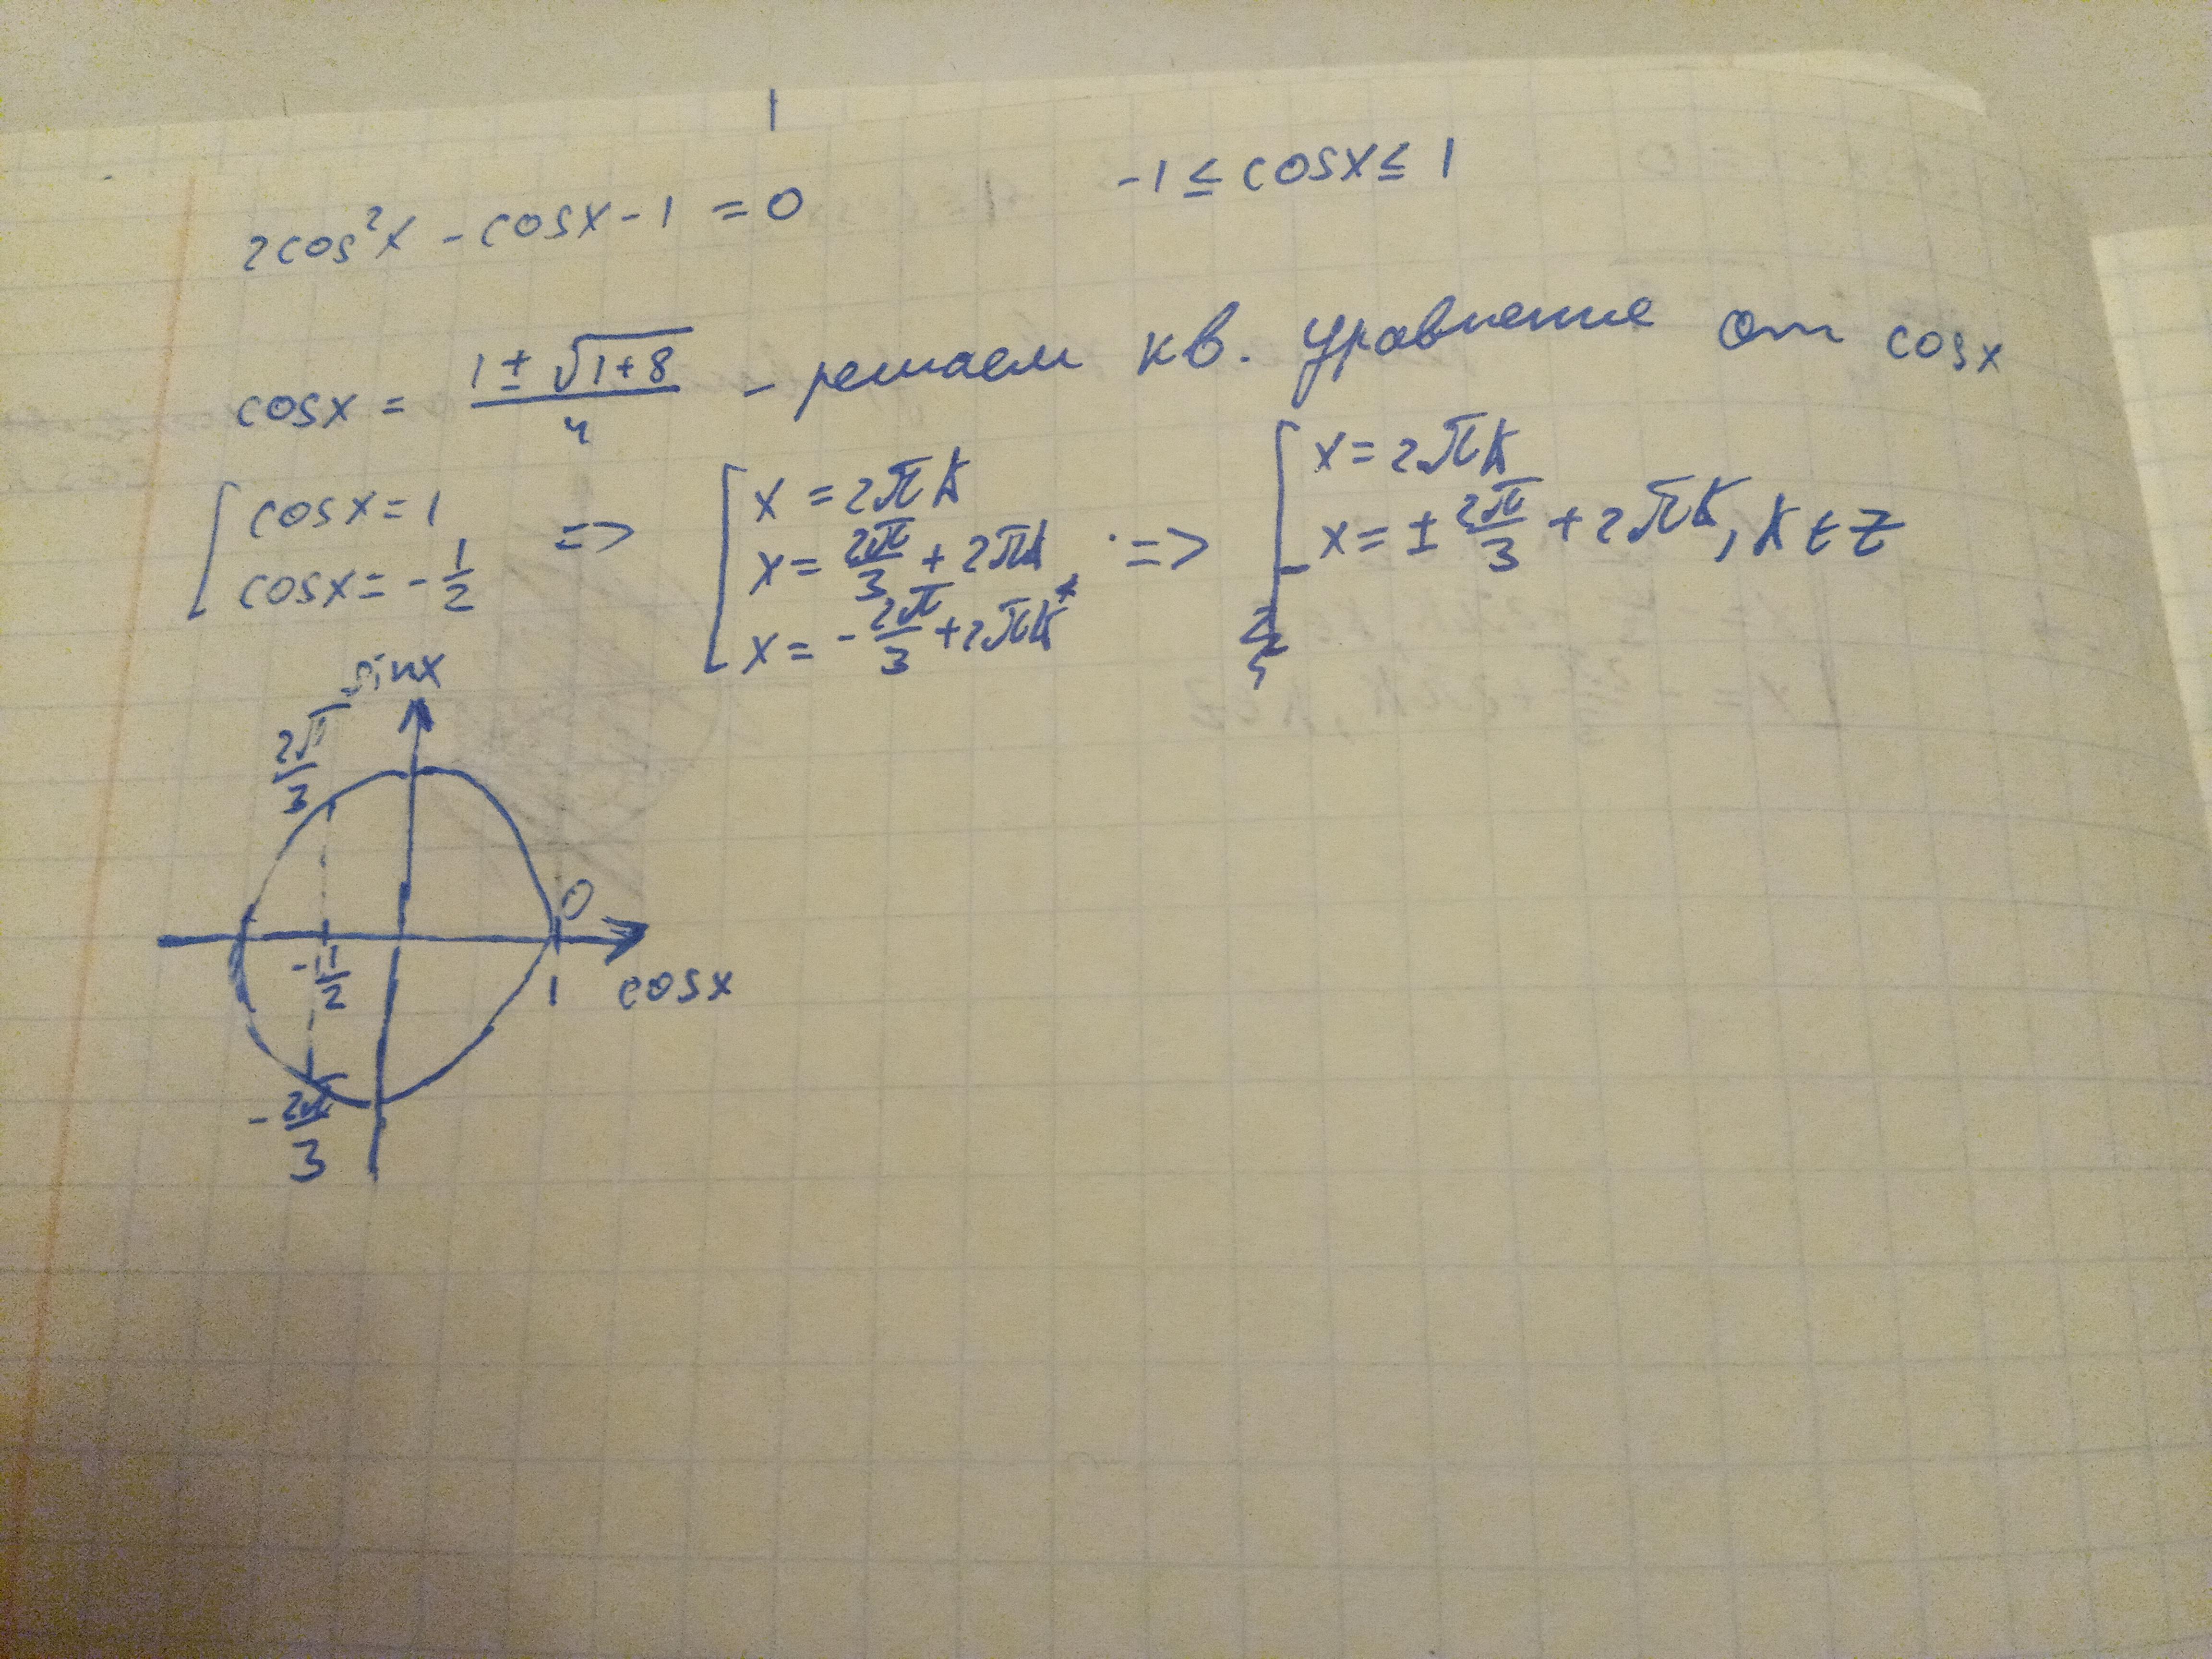 2cos²x - cosx - 1 = 0
-1 ≤ cosx ≤ 1
cosx = (1 ± √(1+8))/4 - решаем кв. уравнение от cosx
[ cosx = 1 => [ x = 2πk => [ x = 2πk
cosx = -1/2 x = 2π/3 + 2πk x = ± 2π/3 + 2πk, k ∈ Z
x = -2π/3 + 2πk
sinx
2π/3
0
-1/2
1 cosx
-2π/3